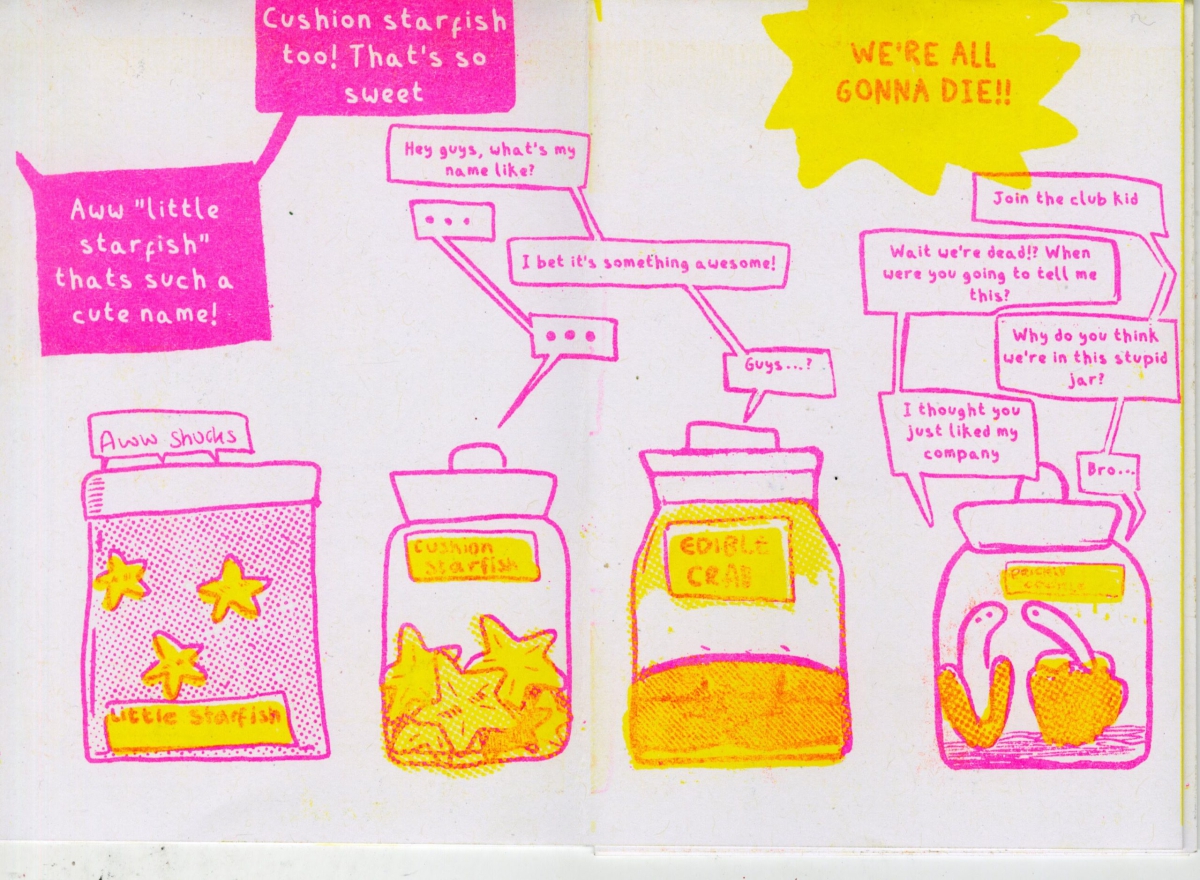 Cushion starfish
too! That's so
sweet
Aww "little
starfish"
thats such a
cute name!
Aww shucks
Little Starfish
Hey guys, what's my
name like?
• • •
I bet it's something awesome!
• • •
Guys...?
Cushion
Starfish
EDIBLE
CRAB
WE'RE ALL
GONNA DIE!!
Join the club kid
Wait we're dead!? When
were you going to tell me
this?
Why do you think
we're in this stupid
jar?
I thought you
just liked my
company
Bro...